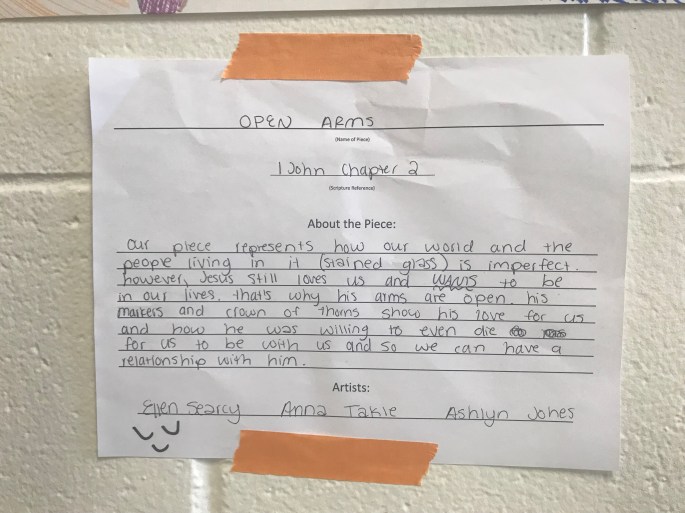 OPEN ARMS
(Name of Piece)
1 John Chapter 2
(Scripture Reference)
About the Piece:
Our piece represents how our world and the
people living in it (stained glass) is imperfect.
however, Jesus still loves us and to be
in our lives. that's why his arms are open. his
markers and crown of thorns show his love for us
and how he was willing to even die
for us to be with us and so we can have a
relationship with him.
Artists:
Ellen Searcy Anna Takle Ashlyn Jones